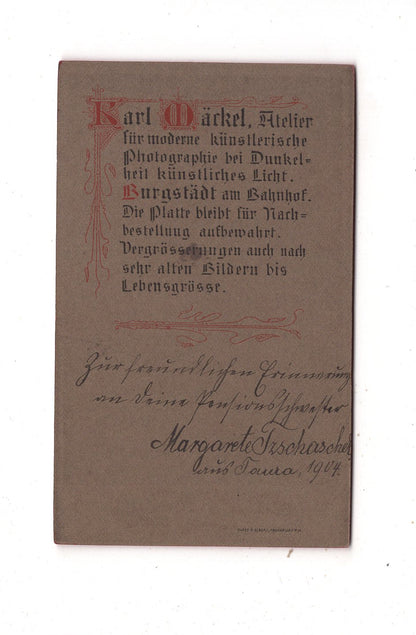 Karl Mäckel, Atelier
für moderne künstlerische
Photographie bei Dunkel=
heit künstliches Licht.
Burgstädt am Bahnhof.
Die Platte bleibt für Nach=
bestellung aufbewahrt.
Vergrösserungen auch nach
sehr alten Bildern bis
Lebensgrösse.
Zur freundlichen Erinnerung
an Deine Pensionsschwester
Margarete
aus Taura, 1904.